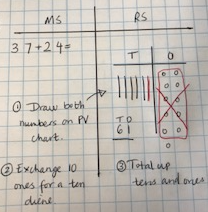 MS RS
37+24=
T O
① Draw both
numbers on PV
chart.
T O
6 1
② Exchange 10
ones for a ten
diene.
③ Total up
tens and ones